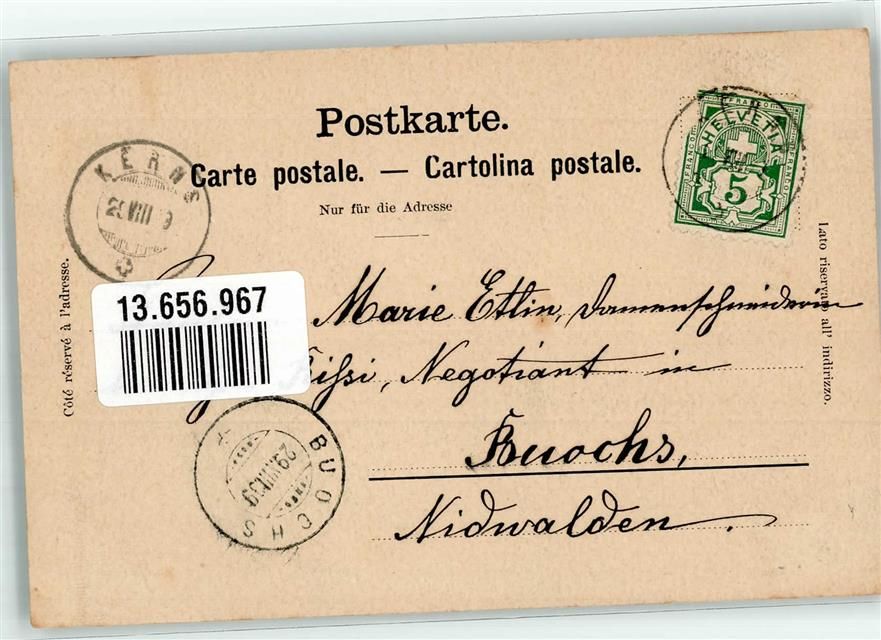 Postkarte.
Carte postale. — Cartolina postale.
Nur für die Adresse
KERNS
FRANCO
HELVETIA
FRANCO
FRANCO
5
Côté réservé à l'adresse.
Lato riservato all' indirizzo.
13.656.967
Marie Etlin, Damenschneiderin
Negotiant in
Buochs,
Nidwalden.
BUOCHS